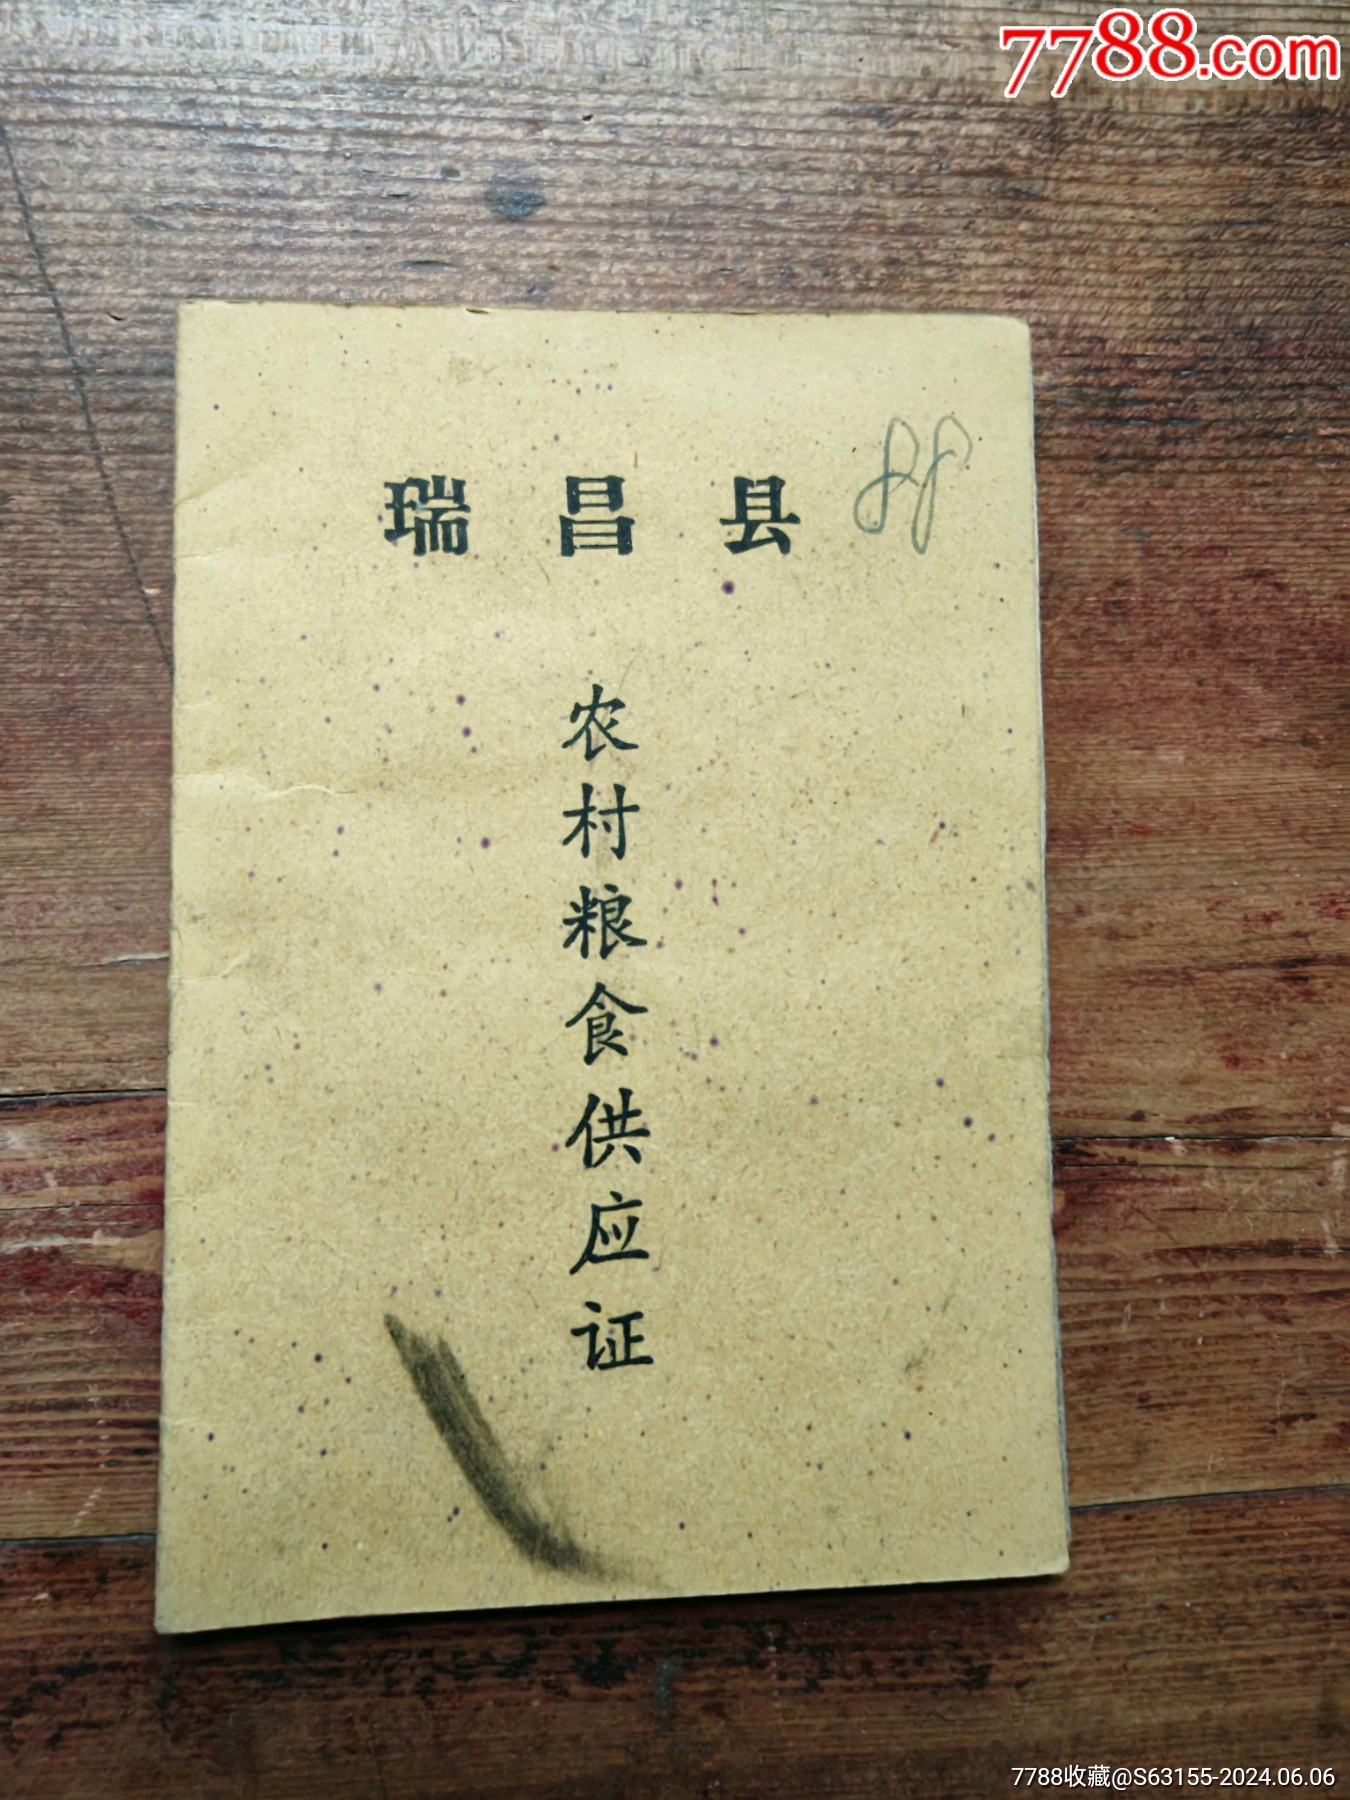 7788.com
瑞昌县
88
农村粮食供应证
7788收藏@S63155-2024.06.06